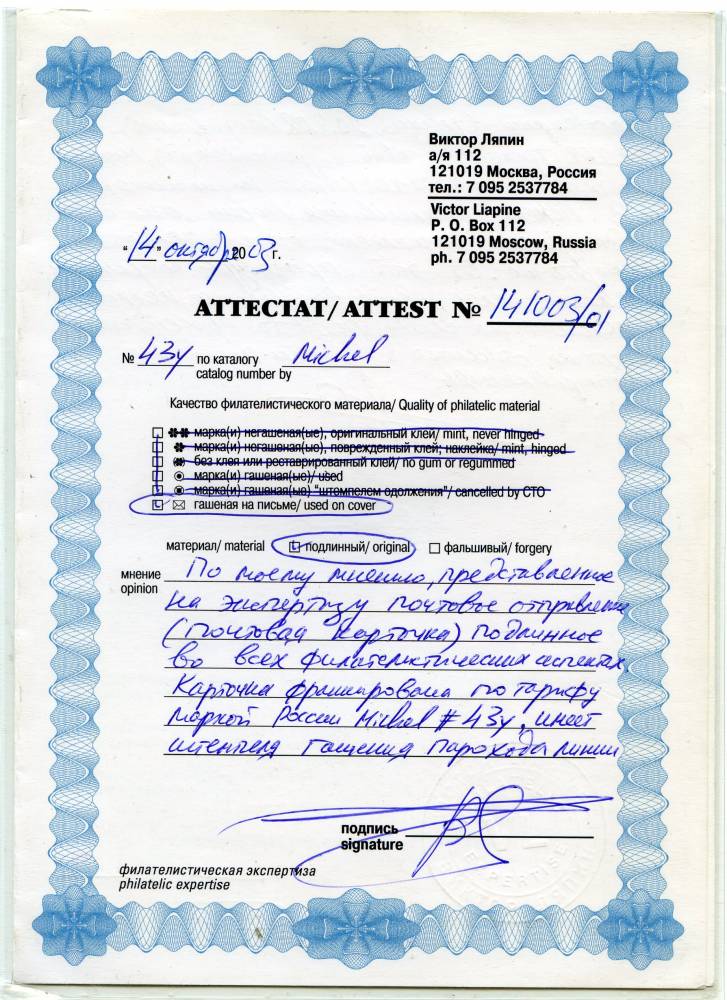 Виктор Ляпин
а/я 112
121019 Москва, Россия
тел.: 7 095 2537784
Victor Liapine
P. O. Box 112
121019 Moscow, Russia
ph. 7 095 2537784
"14" октября 2003 г.
ATTECTAT/ ATTEST № 141003/01
№ 43y по каталогу Michel
catalog number by
Качество филателистического материала/ Quality of philatelic material
марка(и) негашеная(ые), оригинальный клей/ mint, never hinged
марка(и) негашеная(ые), поврежденный клей; наклейка/ mint, hinged
без клея или реставрированный клей/ no gum or regummed
марка(и) гашеная(ые)/ used
марка(и) гашеная(ые) "штемпелем одолжения"/ cancelled by CTO
гашеная на письме/ used on cover
материал/ material подлинный/ original фальшивый/ forgery
мнение По моему мнению, представленное
opinion на экспертизу почтовое отправление
(почтовая карточка) подлинное
во всех филателистических аспектах.
Карточка франкирована по тарифу
маркой России Michel # 43y, имеет
штемпеля гашения парохода линии
подпись
signature
филателистическая экспертиза
philatelic expertise